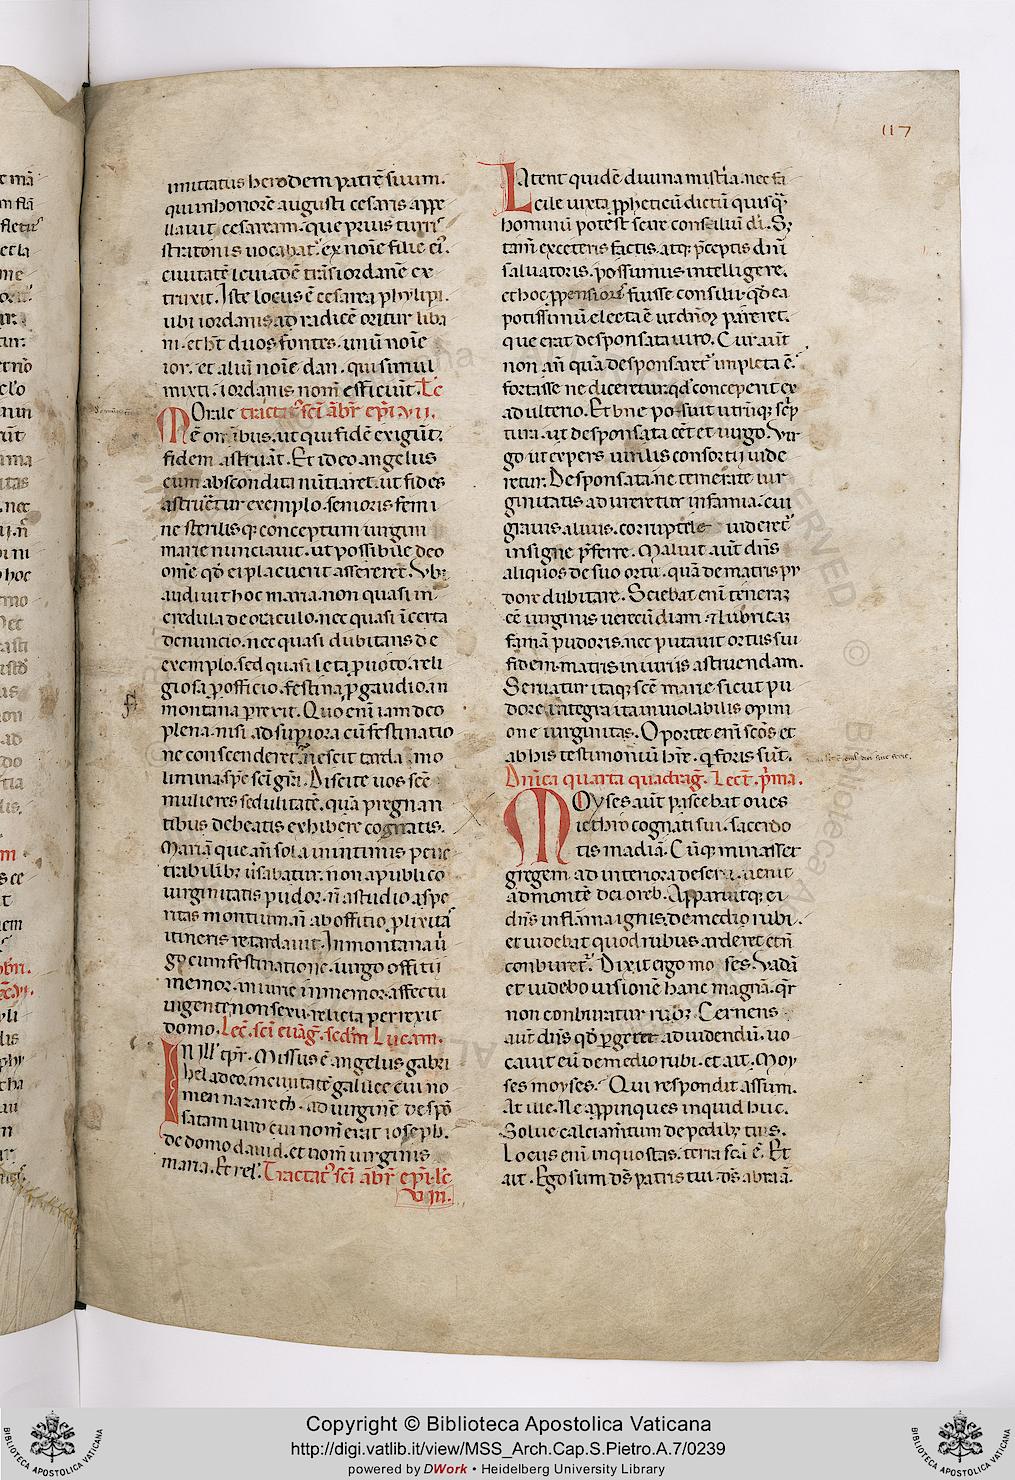 117
imitatus herodem patrē suum.
qui in honorē augusti cesaris appe
llauit cesaream. que prius turris
stratonis uocabat᷑. ex noīe filie ei᷒.
ciuitatē leuiadē trās iordanē ex
truxit. Iste locus ē cesarea phylipi.
ubi iordanis ad radicē oritur liba
ni. et hn̄t duos fontes. unū noīe
ior. et aliū noīe dan. qui simul
mixti. iordanis nom̄ efficiūt. Lc̄
MOrale tractat᷒ sc̄i ābr̄ ep̄i. VII.
ē omībus. ut qui fidē exigūt.
fidem astruāt. Et ideo angelus
cum abscondita nūtiaret. ut fides
astruēretur exemplo. senioris femi
ne sterilisq; conceptum uirgini
marie nunciauit. ut possibile deo
om̄e qd̄ ei placuerit assereret. Vbi
audiuit hoc maria. non quasi in
credula de oraculo. nec quasi īcerta
de nuncio. nec quasi dubitans de
exemplo. sed quasi leta ꝓ uoto. reli
giosa ꝓ officio. festina p̱ gaudio. in
montana perrexit. Quo enī iam deo
plena. nisi ad supiora cū festinatio
ne conscenderet. nescit tarda mo
limina. sp̄s sc̄i gr̄a. Discite uos sc̄e
mulieres sedulitatē. quā pregnan
tibus debeatis exhibere cognatis.
Mariā que an̄ sola in intimis pene
trabilib; uersabatur. non a publico
uirginitatis pudor. n̄ a studio aspe
ritas montium. n̄ ab offitio ꝓlixitā
itineris retardauit. In montana u̇
go cum festinatione. uirgo offitii
memor. iniurie inmemor. affectu
uigente non sexu. relicta perrexit
domo. Lec̄. sc̄i euāg̃. sed̄m Lucam.
IN ill̄ tp̄r. Missus ē angelus gabri
hel a deo. in ciuitatē galilee cui no
men nazareth. ad uirginē despō
satam uiro cui nom̄ erat ioseph.
de domo dauid. et nom̄ uirginis
maria. Et rel̄. Tractat᷒ sc̄i ābr̄ ep̄i. lc̄
VIII.
LAtent quidē diuina mist̄ia. nec fa
cile iuxta ꝓpheticū dictū quisq̄
hominū potēst scire consilium dī. S;
tam̄ ex ceteris factis. atq; p̄ceptis dn̄i
saluatoris. possumus intelligere.
et hoc ꝓpensioris fuisse consilii. qd̄ ea
potissimū electa ē ut dn̄m pareret.
que erat desponsata uiro. Cur aūt
non an̄ quā desponsaret᷑ impleta ē.
fortasse ne diceretur. qd̄ conceperit ex
adulterio. Et bn̄e posuit utrūq; sc̄p
tura. ut desponsata eēt et uirgo. Vir
go ut expers uirilis consortii uide
retur. Desponsata. ne temerate uir
ginitatis adureretur infamia. cui
grauis aluus. corruptele uideret᷑
insigne p̄ferre. Maluit aūt dn̄s
aliquos de suo ortu. quā de matris pu
dore dubitare. Sciebat enī teneraz
eē uirginis uerecūdiam. ⁊ lubricaz
famā pudoris. nec putauit ortus sui
fidem. matris iniuriis astruendam.
Seruatur itaq; sc̄e marie sicut pu
dore integra ita inuiolabilis opini
one uirginitas. Oportet enī sc̄os et
ab his testimoniū hr̄e. q̄ foris sūt.
Dn̄ica quarta quadrag̃. Lect̄. p̄ma.
MOyses aūt pascebat oues
iethro cognati sui. sacerdo
tis madiā. Cūq; minasset
gregem ad interiora deserti. uenit
ad montē dei oreb. Apparuitq; ei
dn̄s in flāma ignis. de medio rubi.
et uidebat quod rubus arderet et n̄
conburet᷑. Dixit ergo moyses. Vadā
et uidebo uisionē hanc magnā. q̄r
non conburatur rub;. Cernens
aūt dn̄s qd̄ pergeret ad uidendū. uo
cauit eū de medio rubi. et ait. Moy
ses moyses. Qui respondit assum.
At ille. Ne appinques inquid huc.
Solue calciam̄tum de pedib; tuis.
Locus enī in quo stas. terra sc̄a ē. Et
ait. Ego sum ds̄ patris tui. ds̄ abraā.
Copyright © Biblioteca Apostolica Vaticana
http://digi.vatlib.it/view/MSS_Arch.Cap.S.Pietro.A.7/0239
powered by DWork • Heidelberg University Library
BIBLIOTECA APOSTOLICA VATICANA
BIBLIOTECA APOSTOLICA VATICANA